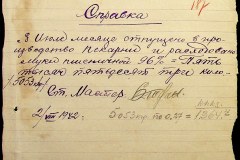 Справка
В Июле месяце отпущено в про-
изводство пекарни и расходовано
Муки пшеничной 96% = Пять
тысяч пятьдесят три кило-
(5053 кг)
Ст. Мастер
2/VIII 1942г. 5053 кг по 0,27 =